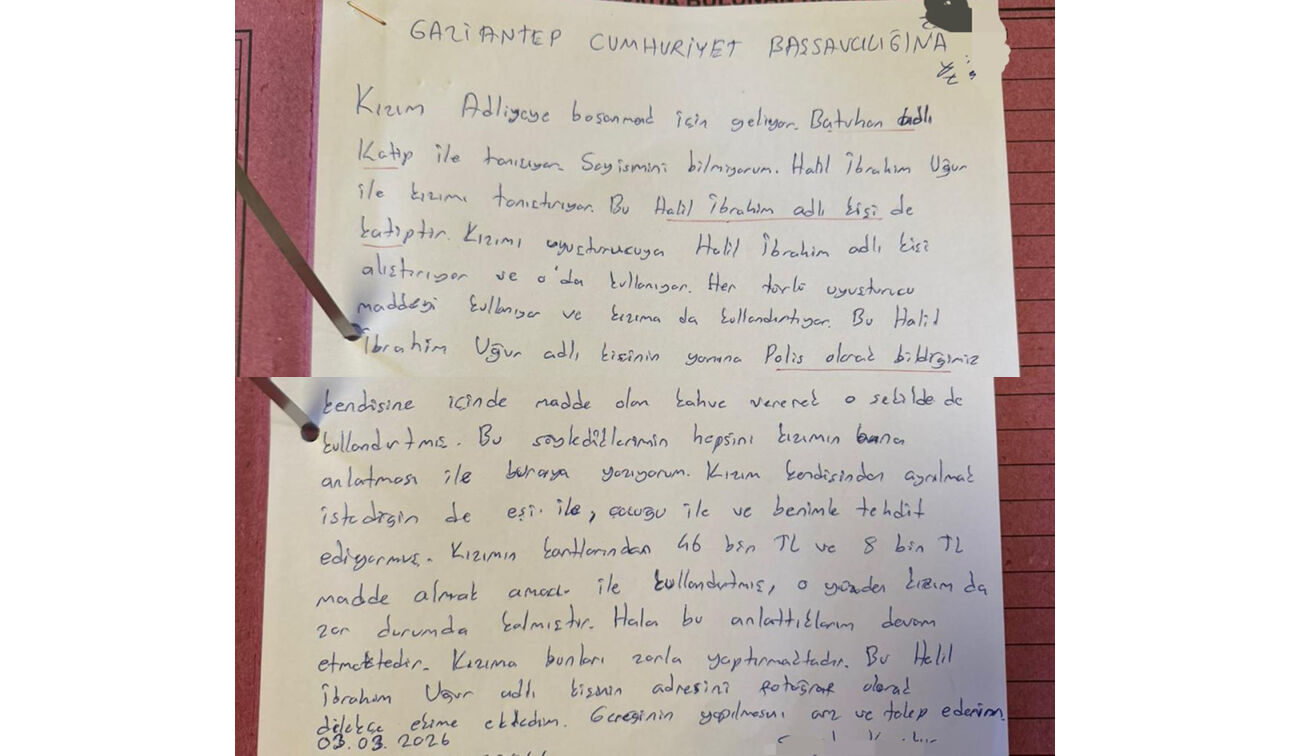 GAZİANTEP CUMHURİYET BAŞSAVCILIĞINA
Kızım Adliyeye boşanmak için geliyor. Batuhan adlı
Katip ile tanışıyor. Soyismini bilmiyorum. Halil İbrahim Uğur
ile kızımı tanıştırıyor. Bu Halil İbrahim adlı kişi de
katiptir. Kızımı uyuşturucuya Halil İbrahim adlı kişi
alıştırıyor ve o'da kullanıyor. Her türlü uyuşturucu
maddeyi kullanıyor ve kızıma da kullandırtıyor. Bu Halil
İbrahim Uğur adlı kişinin yanına Polis olarak bildiğimiz
kendisine içinde madde olan kahve vererek o şekilde de
kullandırtmış. Bu söylediklerimin hepsini kızımın bana
anlatması ile buraya yazıyorum. Kızım kendisinden ayrılmak
istediğin de eşi ile, çocuğu ile ve benimle tehdit
ediyormuş. Kızımın kartlarından 46 bin TL ve 8 bin TL
madde almak amacı ile kullandırtmış, o yüzden kızım da
zor durumda kalmıştır. Hala bu anlattıklarım devam
etmektedir. Kızıma bunları zorla yaptırmaktadır. Bu Halil
İbrahim Uğur adlı kişinin adresini fotoğraf olarak
dilekçe ekime ekledim. Gereğinin yapılmasını arz ve talep ederim.
03.03.2026